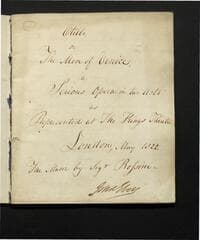 or
The Moor of Venice
a
Serious Opera in two Acts
as
Represented at The Kings Theatre
London, May 1822
The Music by Sigr Rossini